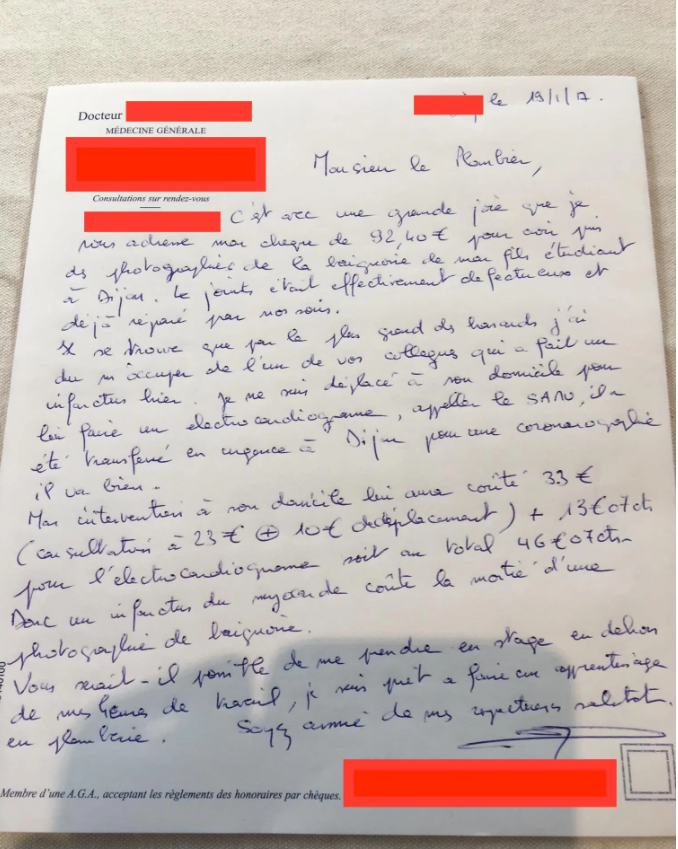 Docteur
MÉDECINE GÉNÉRALE
le 19/1/17.
Monsieur le Plombier,
Consultations sur rendez-vous
C'est avec une grande joie que je
vous adresse mon cheque de 92,40€ pour avoir pris
des photographies de la baignoire de mon fils étudiant
à Dijon. Le joints était effectivement defectueux et
déjà réparé par nos soins.
Il se trouve que par le plus grand des hasards j'ai
du m'occuper de l'un de vos collegues qui a fait un
infarctus hier. Je me suis déplacé à son domicile pour
lui faire un electrocardiogramme, appeller le SAMU, il a
été transferré en urgence à Dijon pour une coronarographie
il va bien.
Mon intervention à son domicile lui aura coûté 33€
(consultation à 23€ + 10€ de déplacement) + 13€07cts
pour l'electrocardiogramme soit au total 46€07cts
Donc un infarctus du myocarde coûte la moitié d'une
photographie de baignoire.
Vous serait-il possible de me prendre en stage en dehors
de mes heures de travail, je suis prêt a faire un apprentissage
en plomberie. Soyez assuré de mes respectueuses salutat.
Membre d'une A.G.A., acceptant les règlements des honoraires par chèques.